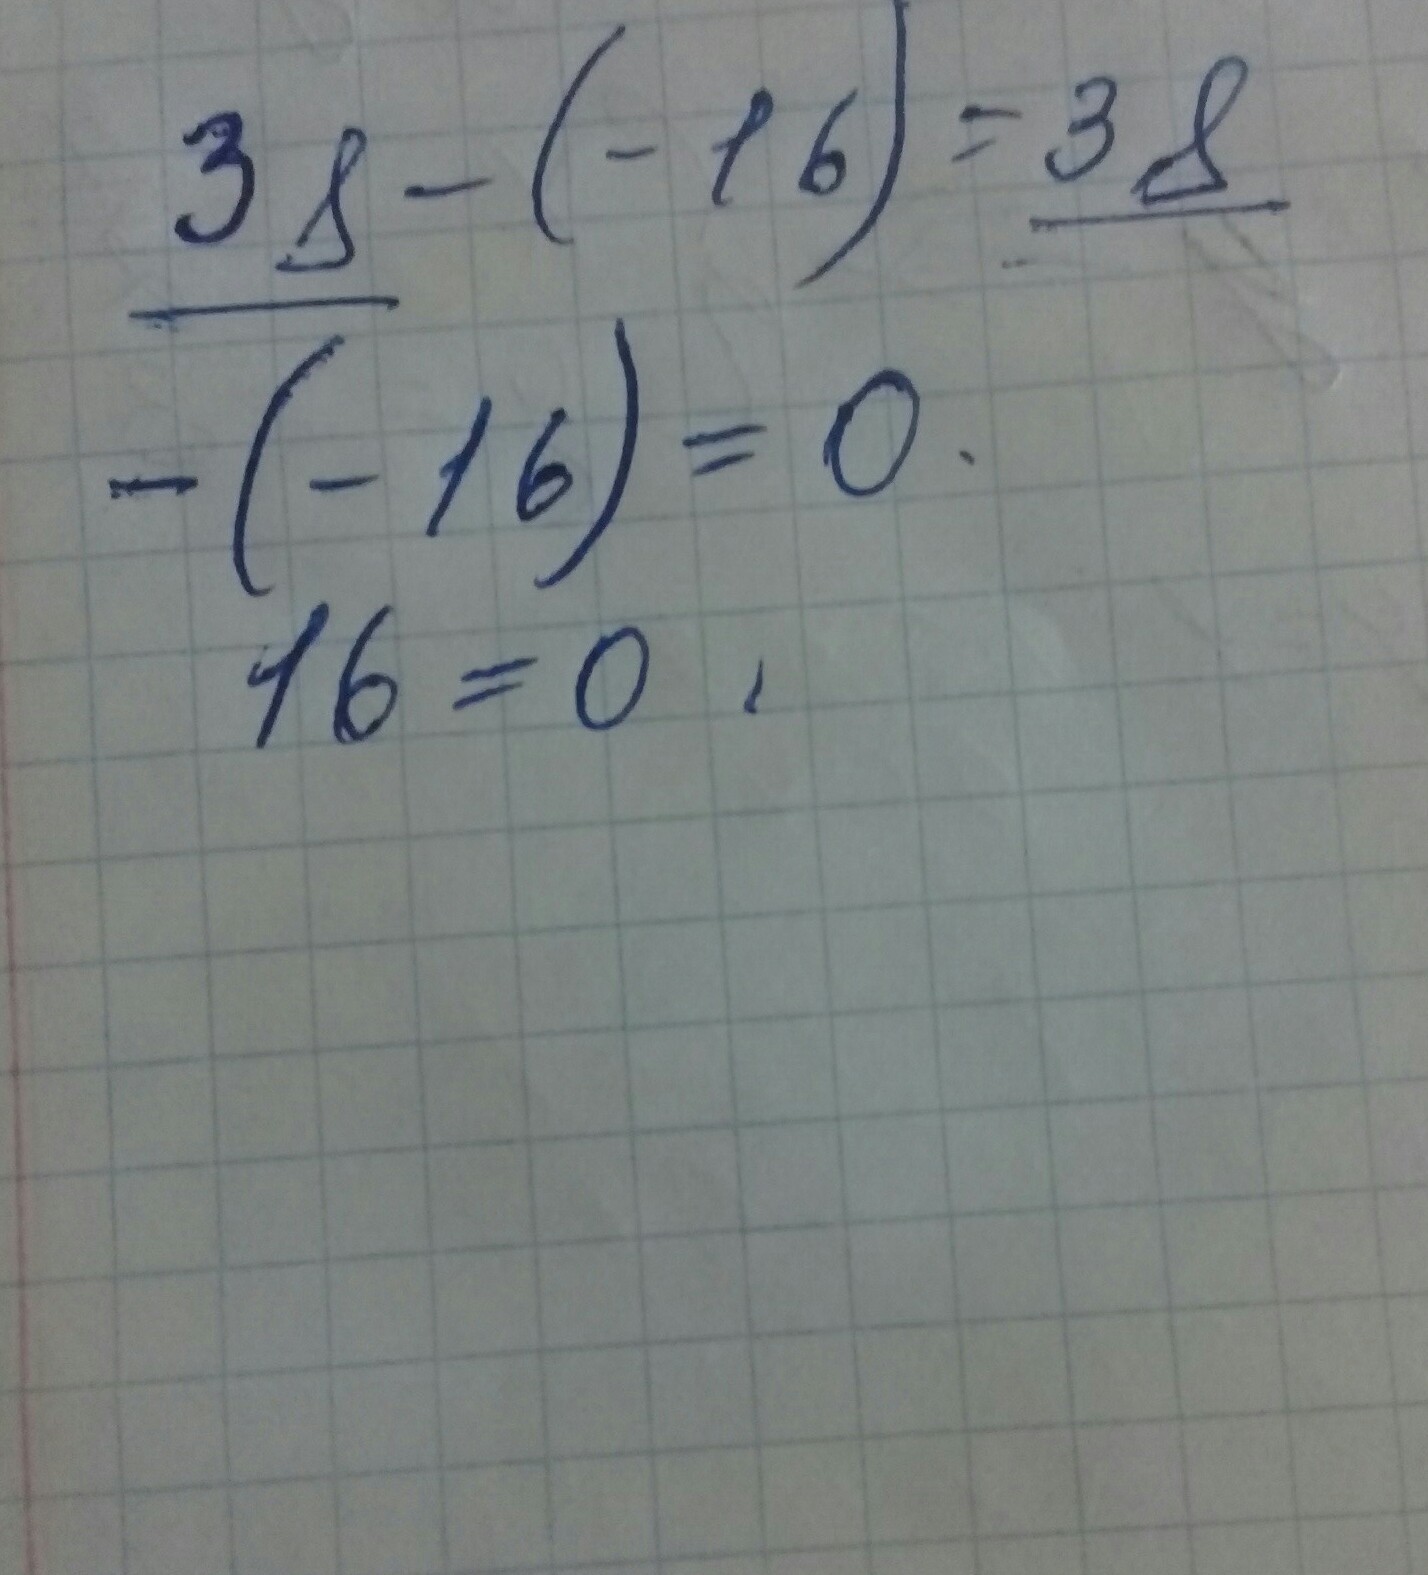 3s-(-16)=3s
-(-16)=0.
16=0.